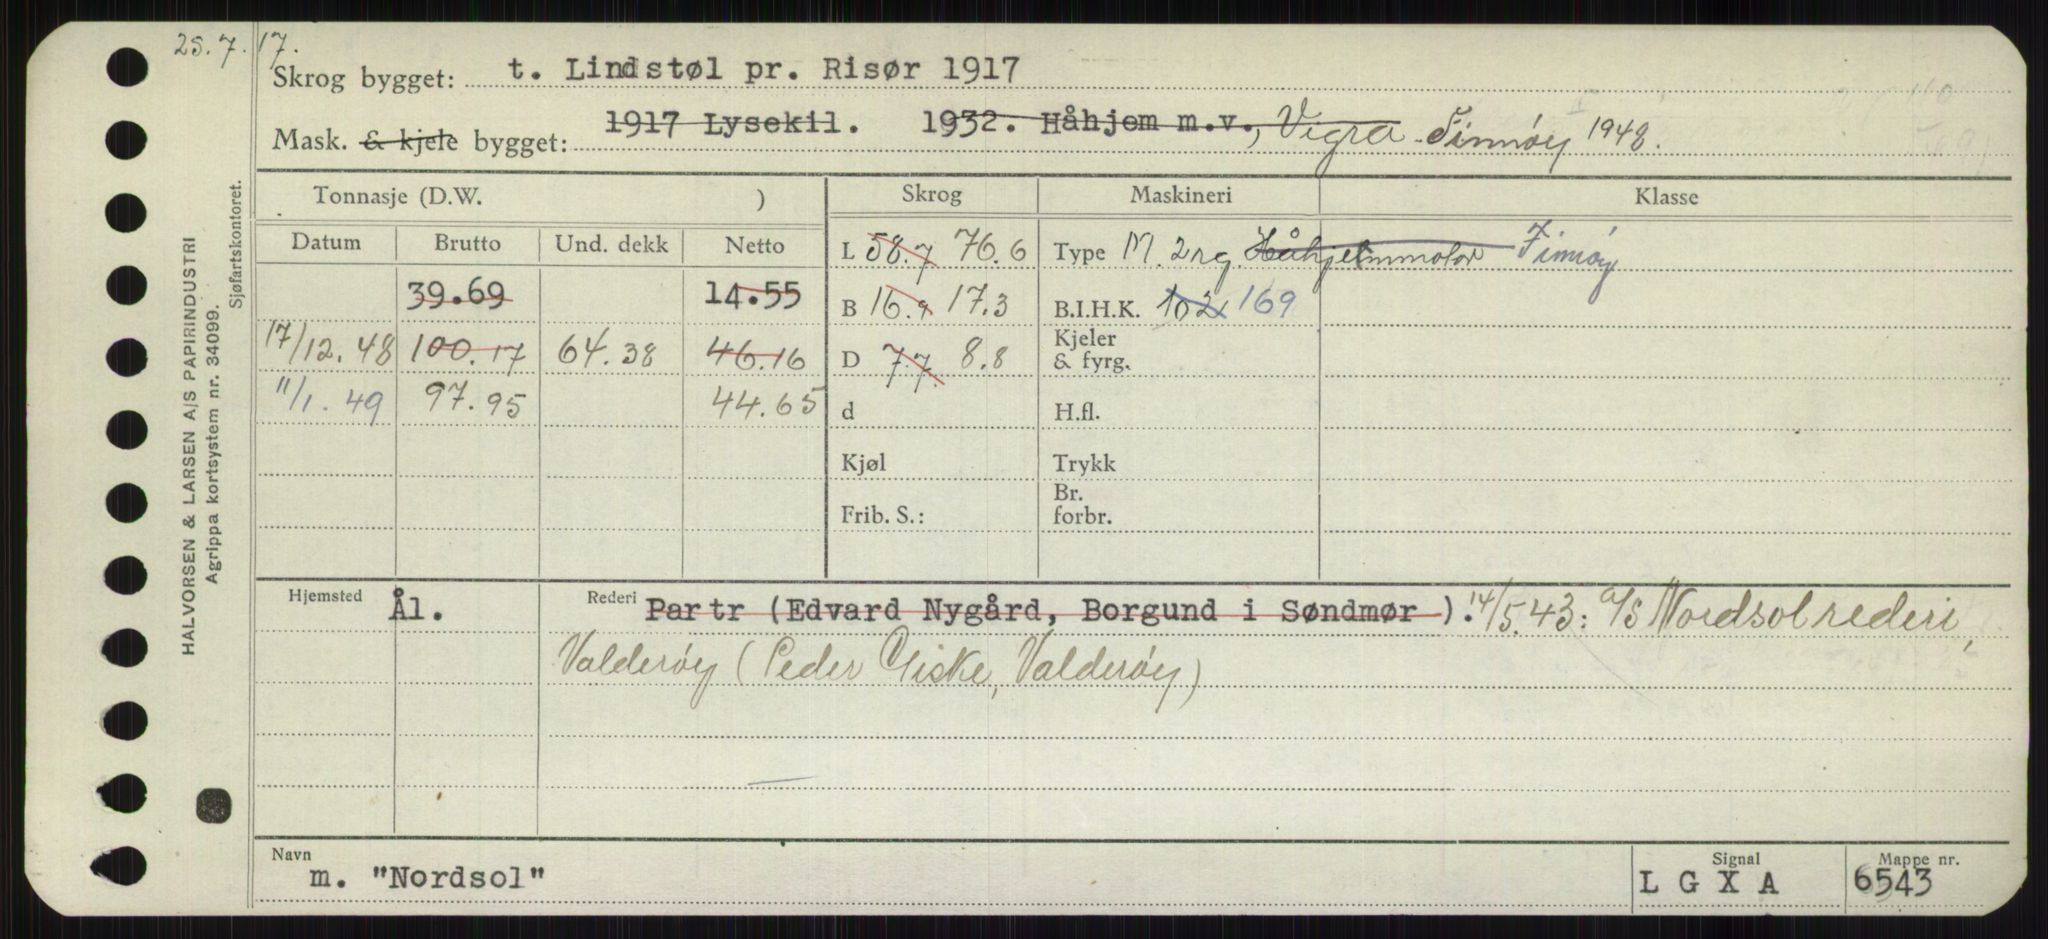 25.7.17.
Skrog bygget: t. Lindstøl pr. Risør 1917
Mask. & kjele bygget: 1917 Lysekil. 1932. Håhjem m.v., Vigra - Finnøy 1948.
Tonnasje (D.W. ) Skrog Maskineri Klasse
Datum Brutto Und. dekk Netto L 58.7 76.6 Type M. 2 rg. Håhjemmotor Finnøy
39.69 14.55 B 16.9 17.3 B.I.H.K. 102 169
17/12.48 100.17 64.38 46.16 D 7.7. 8.8 Kjeler & fyrg.
11/1. 49 97.95 44.65 d H.fl.
Kjøl Trykk
Frib. S.: Br. forbr.
Hjemsted Ål. Rederi Partr (Edvard Nygård, Borgund i Søndmør ). 14/5.43: a/s Nordsol rederi,
Valderøy (Peder Giske, Valderøy)
Navn m. "Nordsol" Signal L G X A Mappe nr. 6543
HALVORSEN & LARSEN A/S PAPIRINDUSTRI
Agrippa kortsystem nr. 34099.
Sjøfartskontoret.